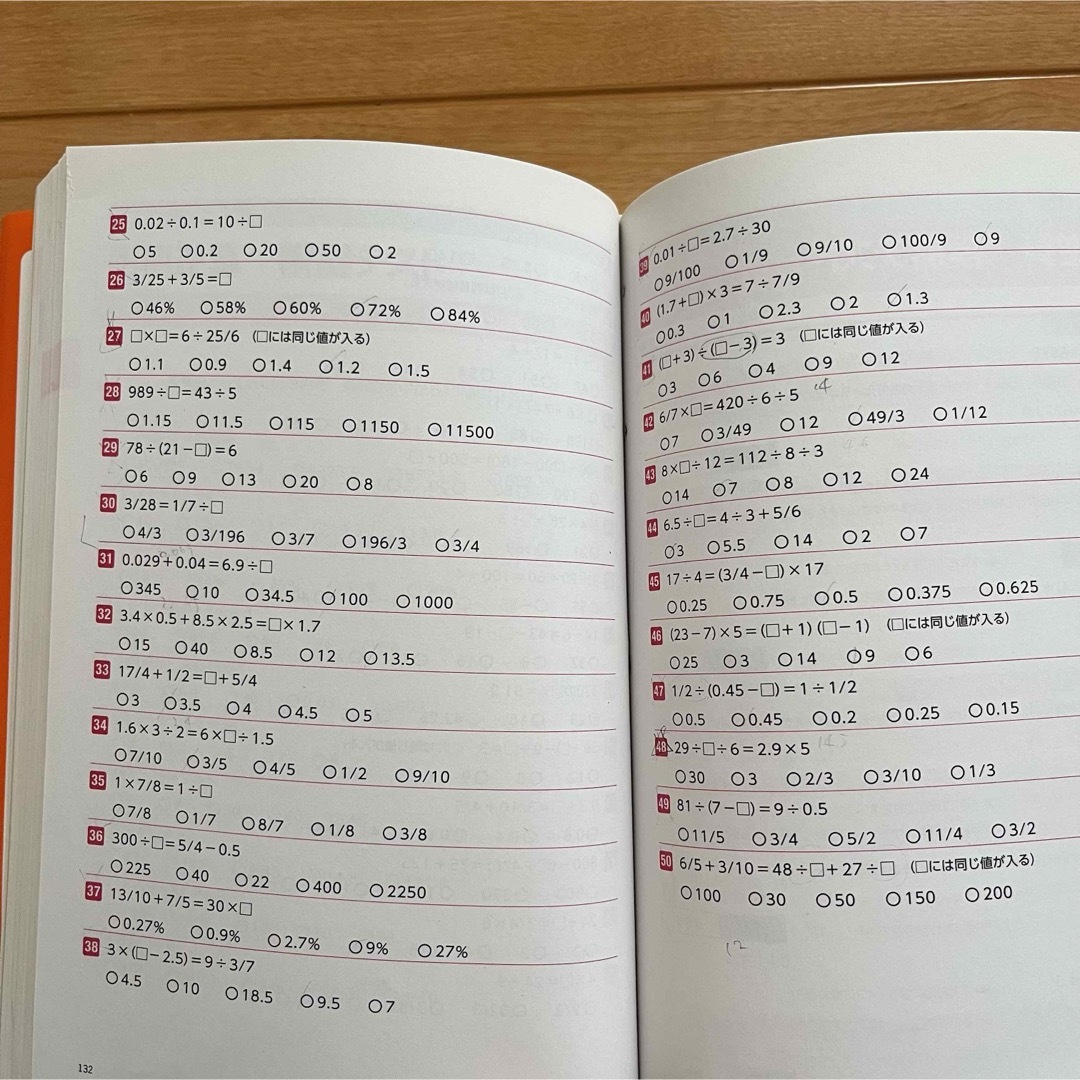 25 0.02÷0.1=10÷□
○5 ○0.2 ○20 ○50 ○2
26 3/25+3/5=□
○46% ○58% ○60% ○72% ○84%
27 □×□=6÷25/6 (□には同じ値が入る)
○1.1 ○0.9 ○1.4 ○1.2 ○1.5
28 989÷□=43÷5
○1.15 ○11.5 ○115 ○1150 ○11500
29 78÷(21−□)=6
○6 ○9 ○13 ○20 ○8
30 3/28=1/7÷□
○4/3 ○3/196 ○3/7 ○196/3 ○3/4
31 0.029+0.04=6.9÷□
○345 ○10 ○34.5 ○100 ○1000
32 3.4×0.5+8.5×2.5=□×1.7
○15 ○40 ○8.5 ○12 ○13.5
33 17/4+1/2=□+5/4
○3 ○3.5 ○4 ○4.5 ○5
34 1.6×3÷2=6×□÷1.5
○7/10 ○3/5 ○4/5 ○1/2 ○9/10
35 1×7/8=1÷□
○7/8 ○1/7 ○8/7 ○1/8 ○3/8
36 300÷□=5/4−0.5
○225 ○40 ○22 ○400 ○2250
37 13/10+7/5=30×□
○0.27% ○0.9% ○2.7% ○9% ○27%
38 3×(□−2.5)=9÷3/7
○4.5 ○10 ○18.5 ○9.5 ○7
132
39 0.01÷□=2.7÷30
○9/100 ○1/9 ○9/10 ○100/9 ○9
40 (1.7+□)×3=7÷7/9
○0.3 ○1 ○2.3 ○2 ○1.3
41 (□+3)÷(□−3)=3 (□には同じ値が入る)
○3 ○6 ○4 ○9 ○12
42 6/7×□=420÷6÷5 14
○7 ○3/49 ○12 ○49/3 ○1/12
43 8×□÷12=112÷8÷3
○14 ○7 ○8 ○12 ○24
44 6.5÷□=4÷3+5/6
○3 ○5.5 ○14 ○2 ○7
45 17÷4=(3/4−□)×17
○0.25 ○0.75 ○0.5 ○0.375 ○0.625
46 (23−7)×5=(□+1)(□−1) (□には同じ値が入る)
○25 ○3 ○14 ○9 ○6
47 1/2÷(0.45−□)=1÷1/2
○0.5 ○0.45 ○0.2 ○0.25 ○0.15
48 29÷□÷6=2.9×5
○30 ○3 ○2/3 ○3/10 ○1/3
49 81÷(7−□)=9÷0.5
○11/5 ○3/4 ○5/2 ○11/4 ○3/2
50 6/5+3/10=48÷□+27÷□ (□には同じ値が入る)
○100 ○30 ○50 ○150 ○200
12